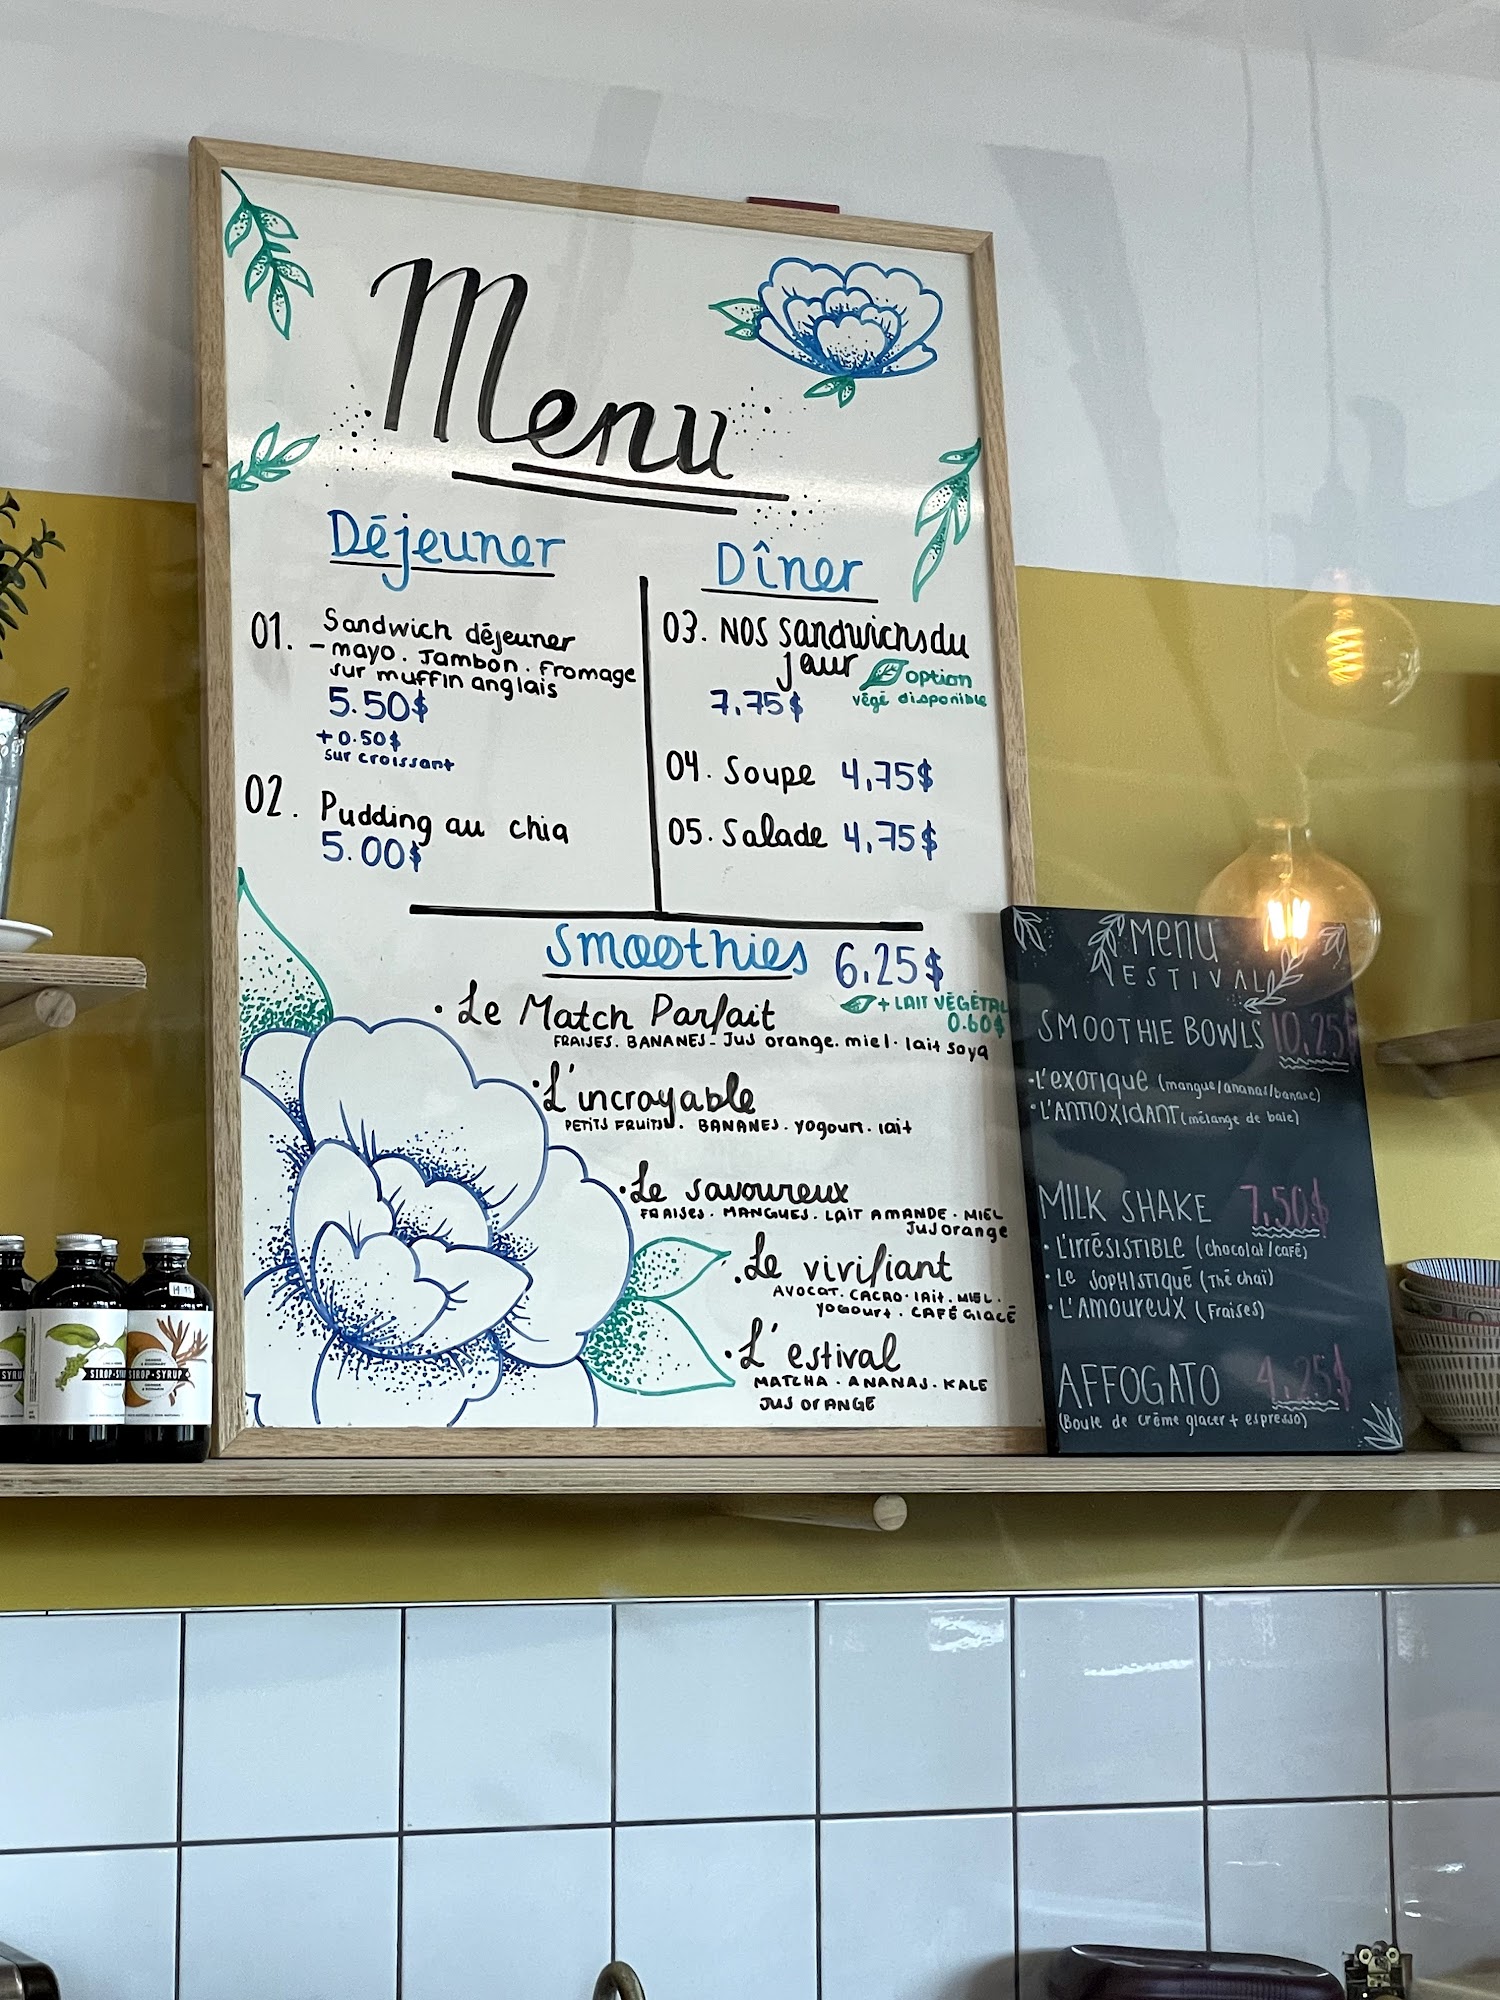 Menu
Déjeuner
01. Sandwich déjeuner
- mayo. Jambon. Fromage
sur muffin anglais
5.50$
+0.50$
sur croissant
02. Pudding au chia
5.00$
Dîner
03. NOS sandwichs du
jour
option
végé disponible
7,75$
04. Soupe 4,75$
05. Salade 4,75$
Smoothies 6.25$
+ LAIT VÉGÉTAL
0.60$
• Le Match Parfait
FRAISES. BANANES - Jus orange. miel. lait soya
• L'incroyable
PETITS FRUITS. BANANES. yogourt. lait
• Le savoureux
FRAISES. MANGUES. LAIT AMANDE. MIEL
Jus orange
• Le vivifiant
AVOCAT. CACAO. lait. MIEL.
yogourt. CAFÉ Glacé
• L'estival
MATCHA. ANANAS. KALE
JUS ORANGE
Menu
ESTIVAL
SMOOTHIE BOWLS 10,25$
• L'EXOTIQUE (mangue/ananas/banane)
• L'ANTIOXIDANT (mélange de baie)
MILK SHAKE 7,50$
• L'IRRÉSISTIBLE (chocolat/café)
• Le SOPHISTIQUÉ (Thé chaï)
• L'AMOUREUX (Fraises)
AFFOGATO 4,25$
(Boule de crème glacer + espresso)
SIROP-SYRUP